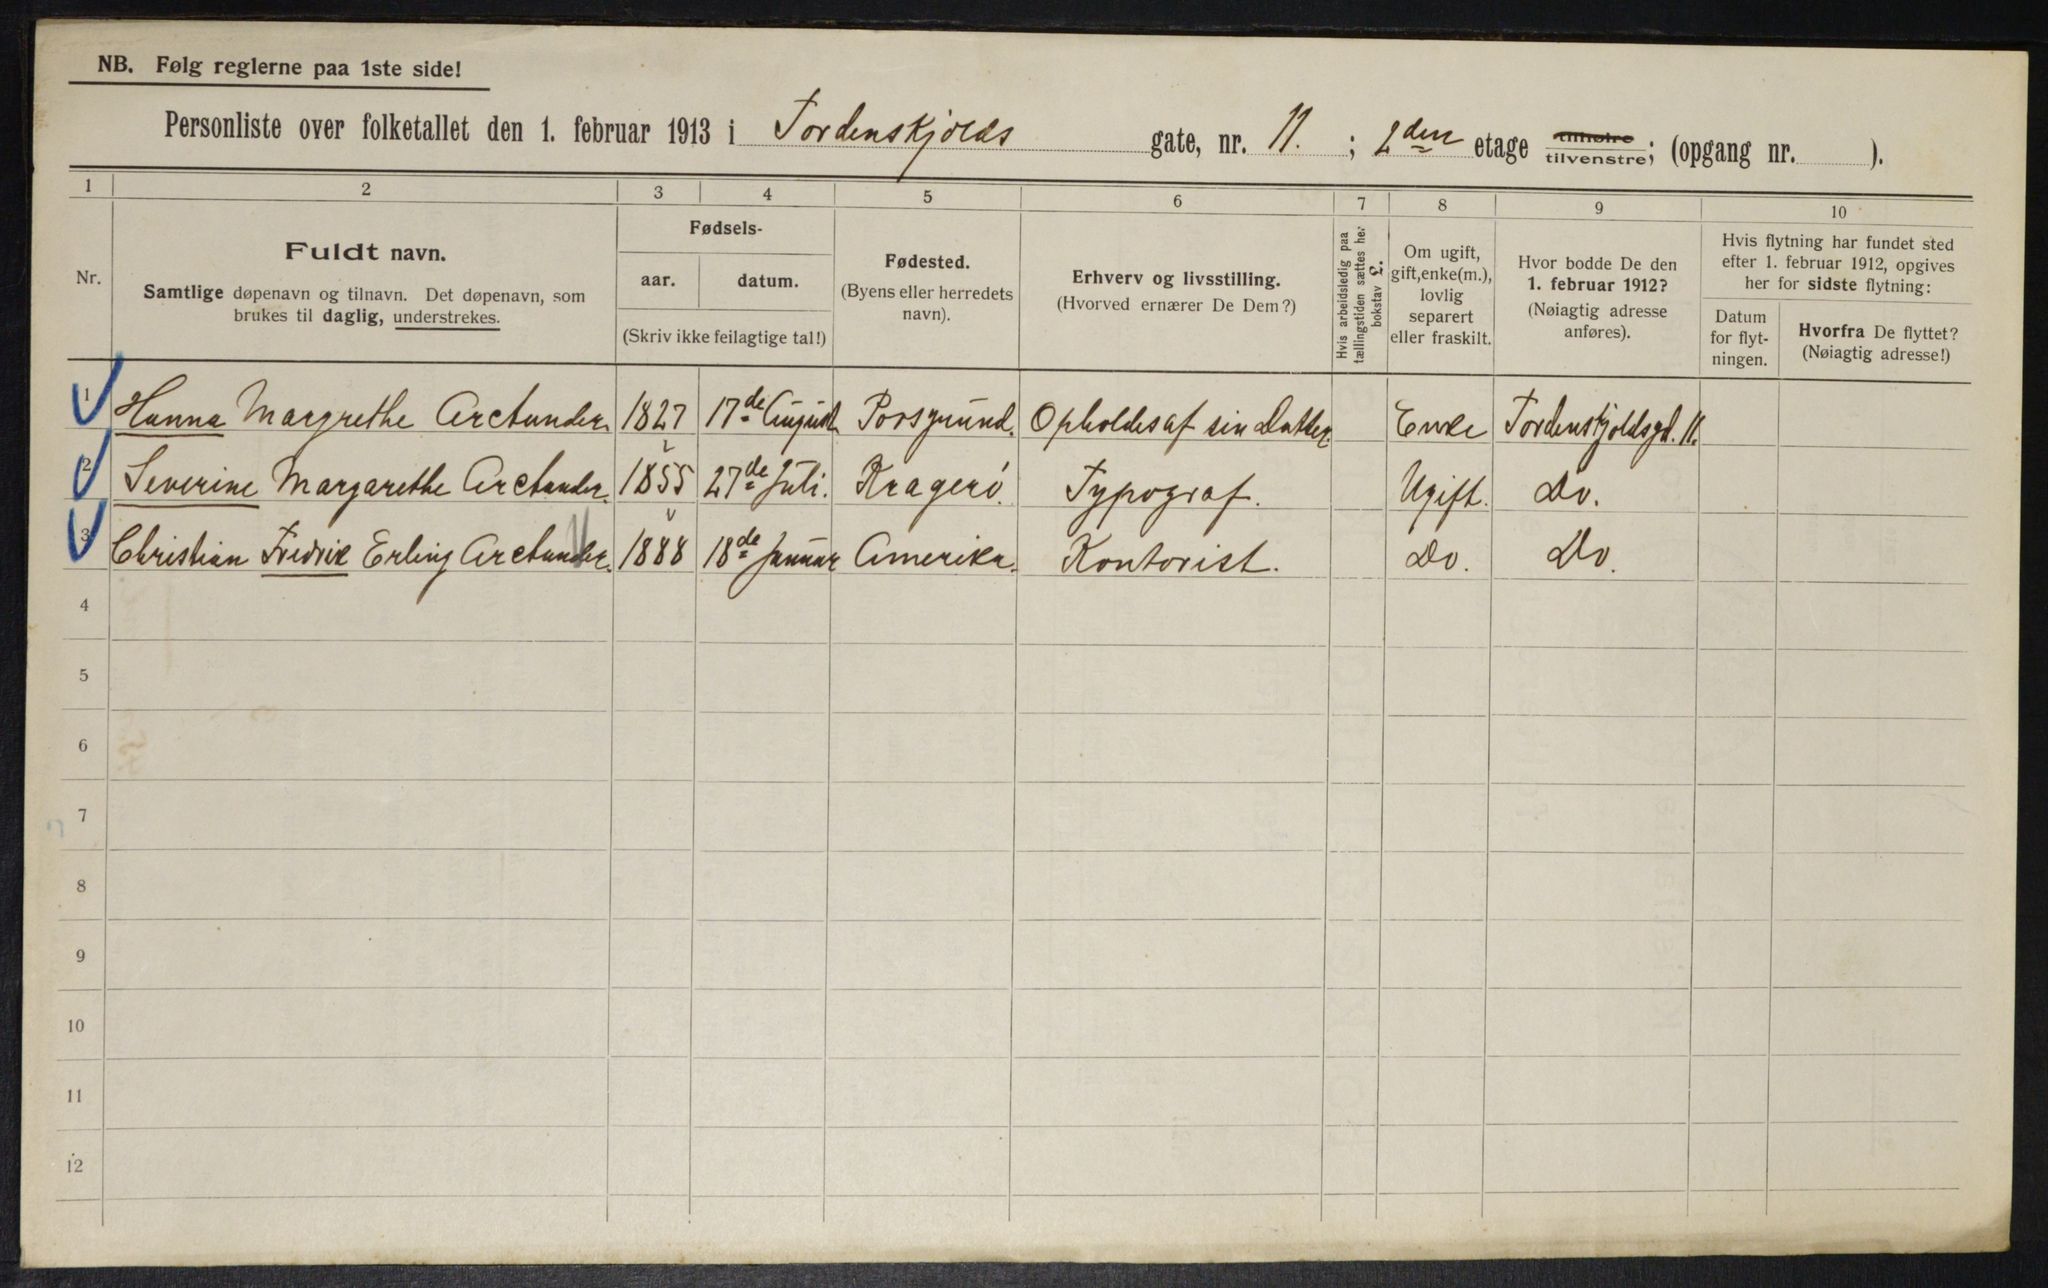 NB. Følg reglerne paa 1ste side!
Personliste over folketallet den 1. februar 1913 i Tordenskjolds gate, nr. 11. ; 2den etage tilhøire tilvenstre; (opgang nr. ).
1 2 3 4 5 6 7 8 9 10
Nr.
Fuldt navn.
Samtlige døpenavn og tilnavn. Det døpenavn, som
brukes til daglig, understrekes.
Fødsels-
aar. datum.
(Skriv ikke feilagtige tal!)
Fødested.
(Byens eller herredets
navn).
Erhverv og livsstilling.
(Hvorved ernærer De Dem?)
Hvis arbeidsledig paa
tællingstiden sættes her
bokstav L.
Om ugift,
gift, enke(m.),
lovlig
separert
eller fraskilt.
Hvor bodde De den
1. februar 1912?
(Nøiagtig adresse
anføres).
Hvis flytning har fundet sted
efter 1. februar 1912, opgives
her for sidste flytning:
Datum
for flyt-
ningen.
Hvorfra De flyttet?
(Nøiagtig adresse!)
1 Hanna Margrethe Arctander. 1827 17de August Porsgrund. Opholdes af sin Datter. Enke Tordenskjoldsgd. 11.
2 Severine Margarethe Arctander. 1855 27de Juli. Kragerö. Typograf. Ugift. Do.
3 Christian Fredrik Erling Arctander. 1888 18de Januar Amerika. Kontorist. Do. Do.
4
5
6
7
8
9
10
11
12